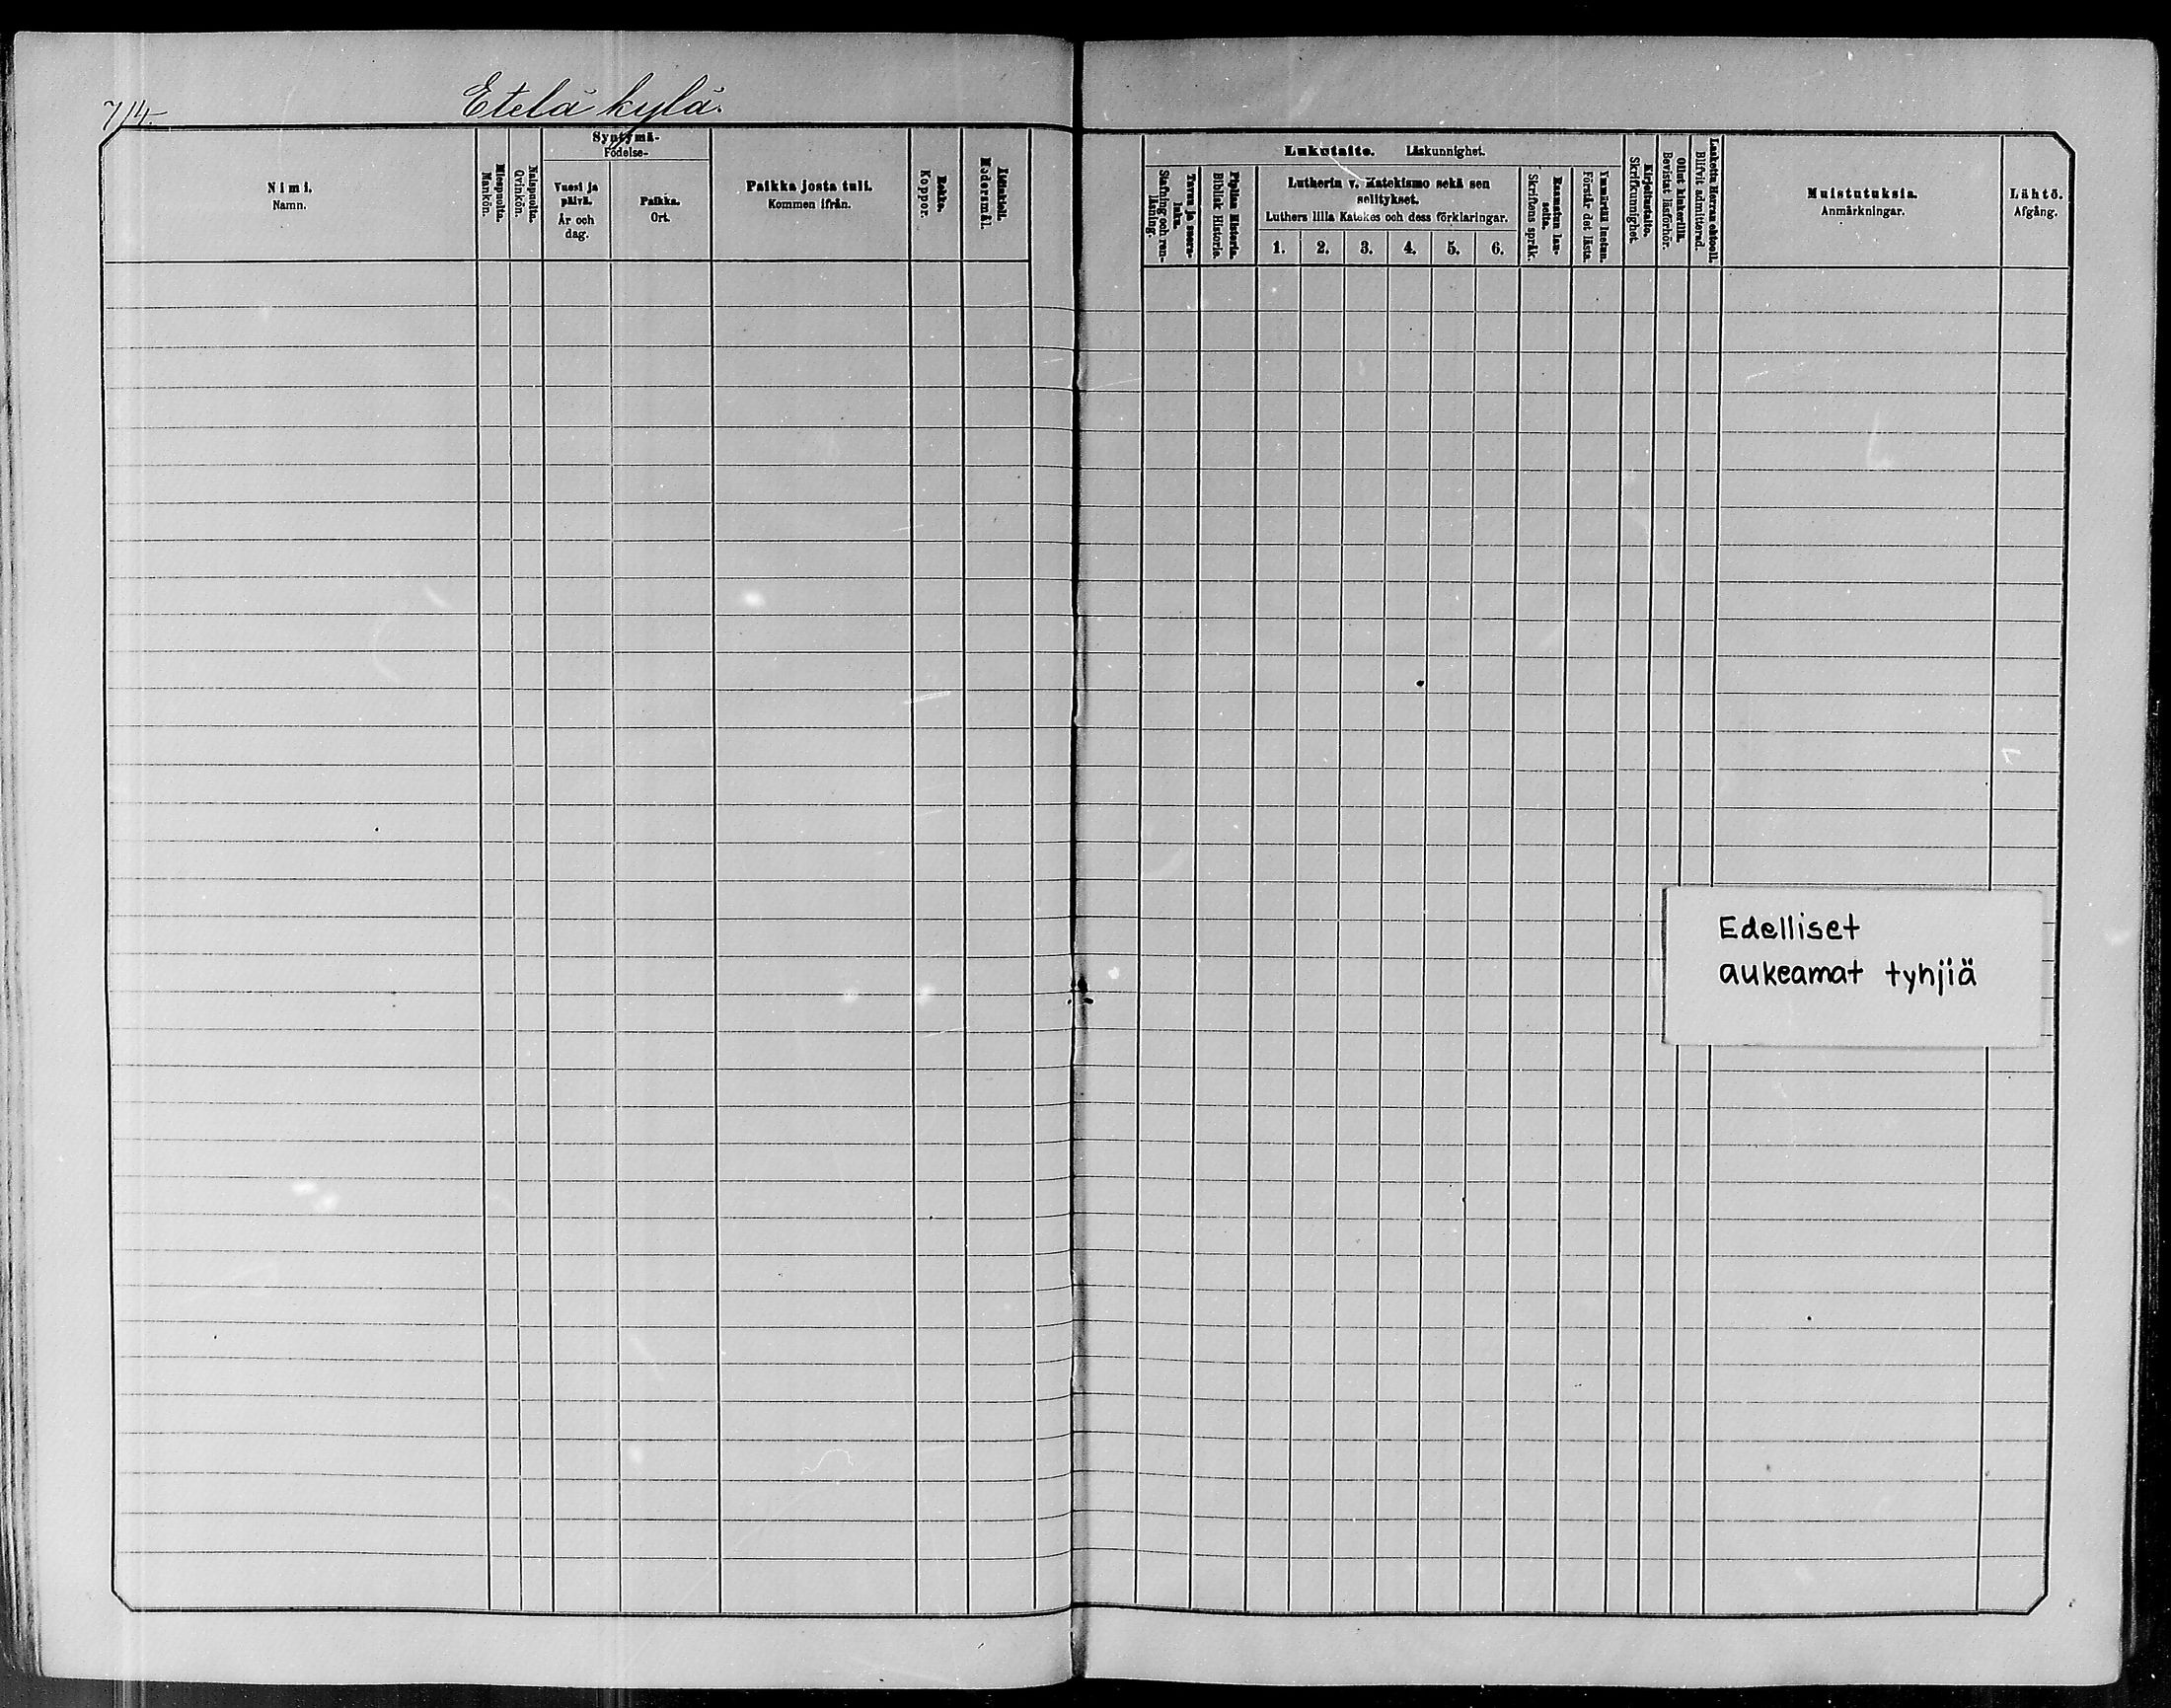 714.
Etelä kylä.
Nimi.
Namn.
Miespuolta.
Mankön.
Naispuolta.
Qvinkön.
Syntymä-
Födelse-
Vuosi ja
päivä.
År och
dag.
Paikka.
Ort.
Paikka josta tuli.
Kommen ifrån.
Rokko.
Koppor.
Äidinkieli.
Modersmål.
Lukutaito. Läskunnighet.
Tavuu ja suora-
luku.
Stafning och ren-
läsning.
Piplian Historia.
Biblisk Historie.
Lutherin v. Katekismo sekä sen
selitykset.
Luthers lilla Katekes och dess förklaringar.
1. 2. 3. 4. 5. 6.
Raamatun lau-
seita.
Skriftens språk.
Ymmärtää luetun.
Förstår det lästa.
Kirjoitustaito.
Skrifkunnighet.
Ollut kinkerillä.
Bevistat läsförhör.
Laskettu Herran ehtooll.
Blifvit admitterad.
Muistutuksia.
Anmärkningar.
Lähtö.
Afgång.
Edelliset
aukeamat tyhjiä